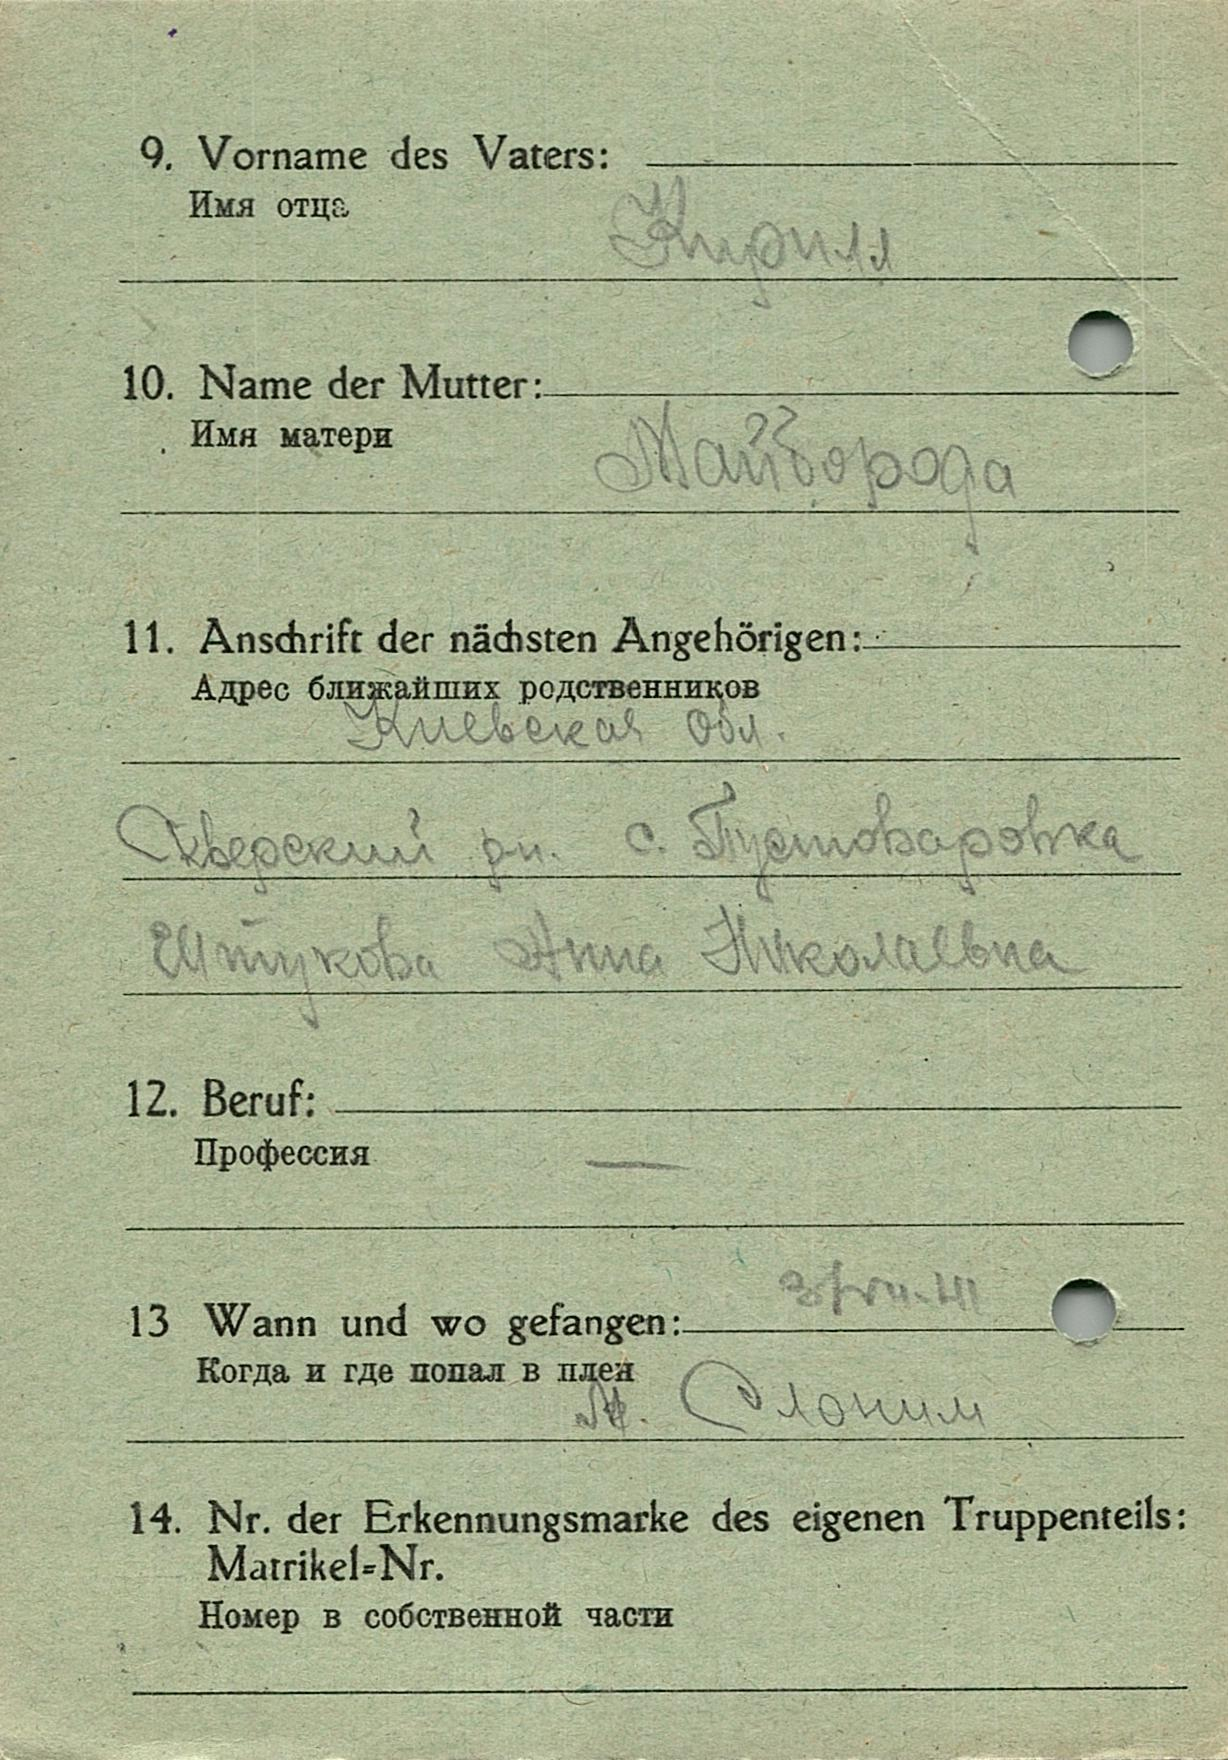 9. Vorname des Vaters:
Имя отца
Кирилл
10. Name der Mutter:
Имя матери
Майборода
11. Anschrift der nächsten Angehörigen:
Адрес ближайших родственников
Киевская обл.
Скверский рн. с. Пустоваровка
Штукова Анна Николаевна
12. Beruf:
Профессия
—
13 Wann und wo gefangen:
Когда и где попал в плен
Слоним
14. Nr. der Erkennungsmarke des eigenen Truppenteils:
Matrikel=Nr.
Номер в собственной части